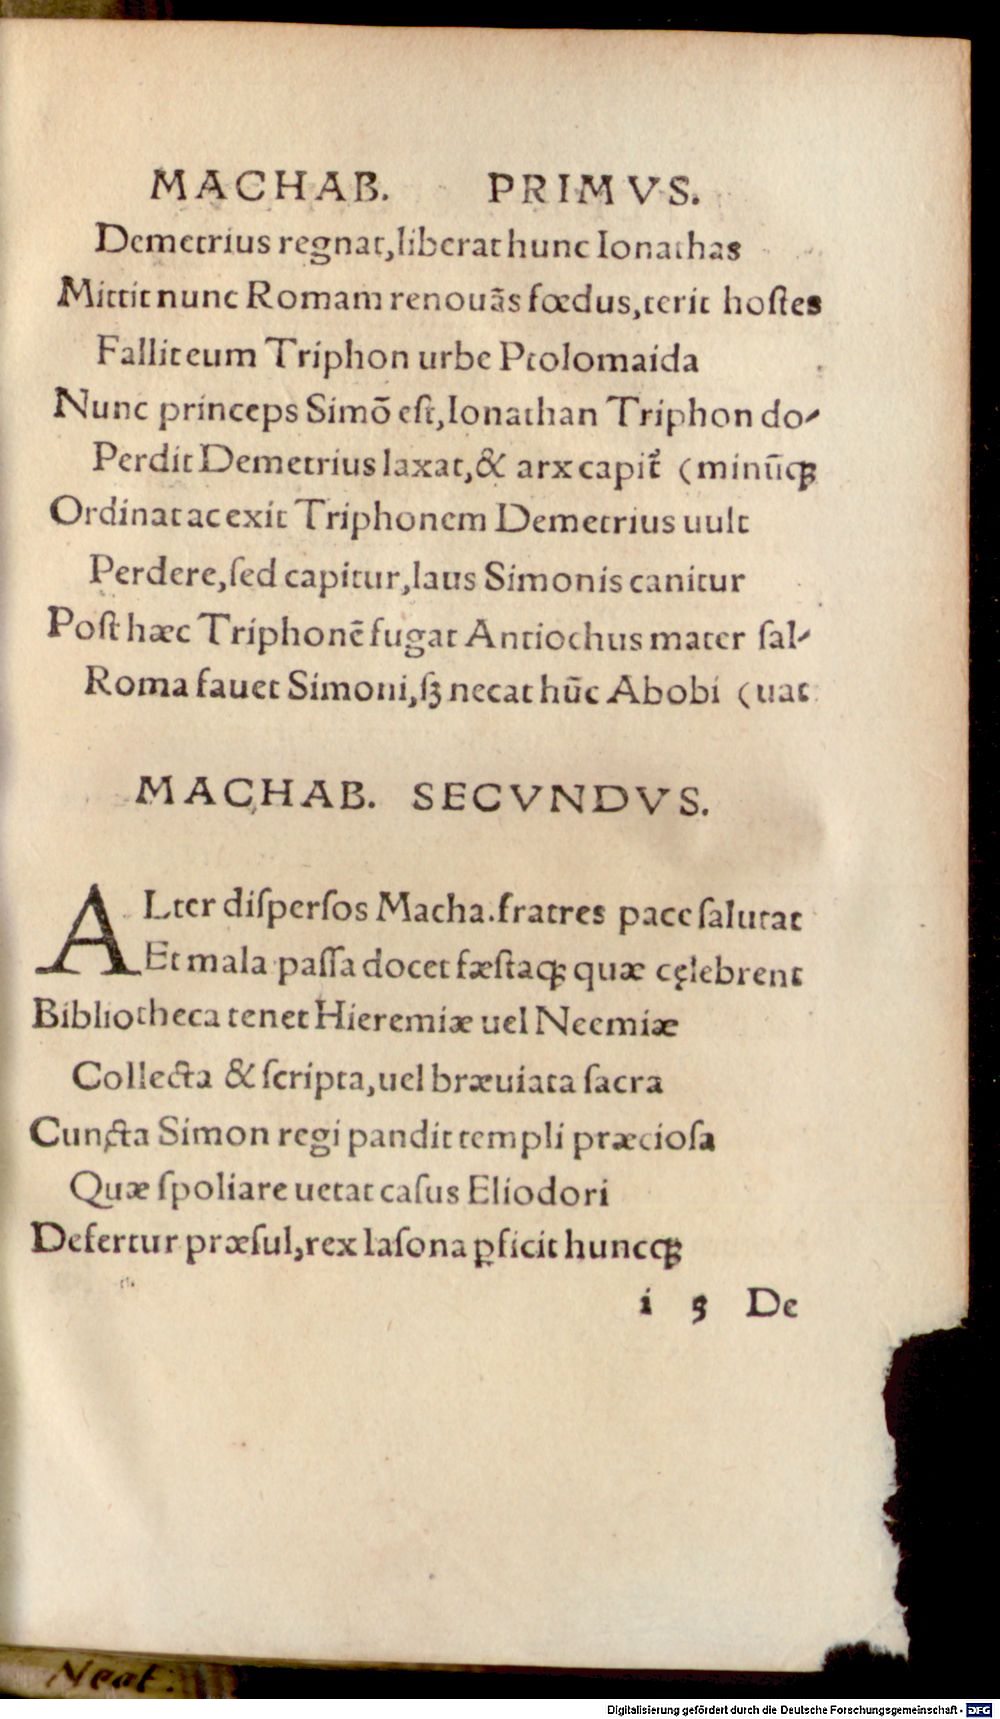 MACHAB. PRIMVS.
Demetrius regnat,liberat hunc Ionathas
Mittit nunc Romam renouãs fœdus,terit hoſtes
Fallit eum Triphon urbe Ptolomaida
Nunc princeps Simõ eſt,Ionathan Triphon do-
Perdit Demetrius laxat,& arx capit᷑ (minũqꝫ
Ordinat ac exit Triphonem Demetrius uult
Perdere,ſed capitur,laus Simonis canitur
Poſt hæc Triphonẽ fugat Antiochus mater ſal-
Roma fauet Simoni,ſꝫ necat hũc Abobi (uat
MACHAB. SECVNDVS.
ALter diſperſos Macha.fratres pace ſalutat
Et mala paſſa docet fæſtaqꝫ quæ cęlebrent
Bibliotheca tenet Hieremiæ uel Neemiæ
Collecta & ſcripta,uel bræuiata ſacra
Cuncta Simon regi pandit templi præcioſa
Quæ ſpoliare uetat caſus Eliodori
Defertur præſul,rex Iaſona ꝑficit huncqꝫ
i 5 De
Neat:
Digitalisierung gefördert durch die Deutsche Forschungsgemeinschaft - DFG